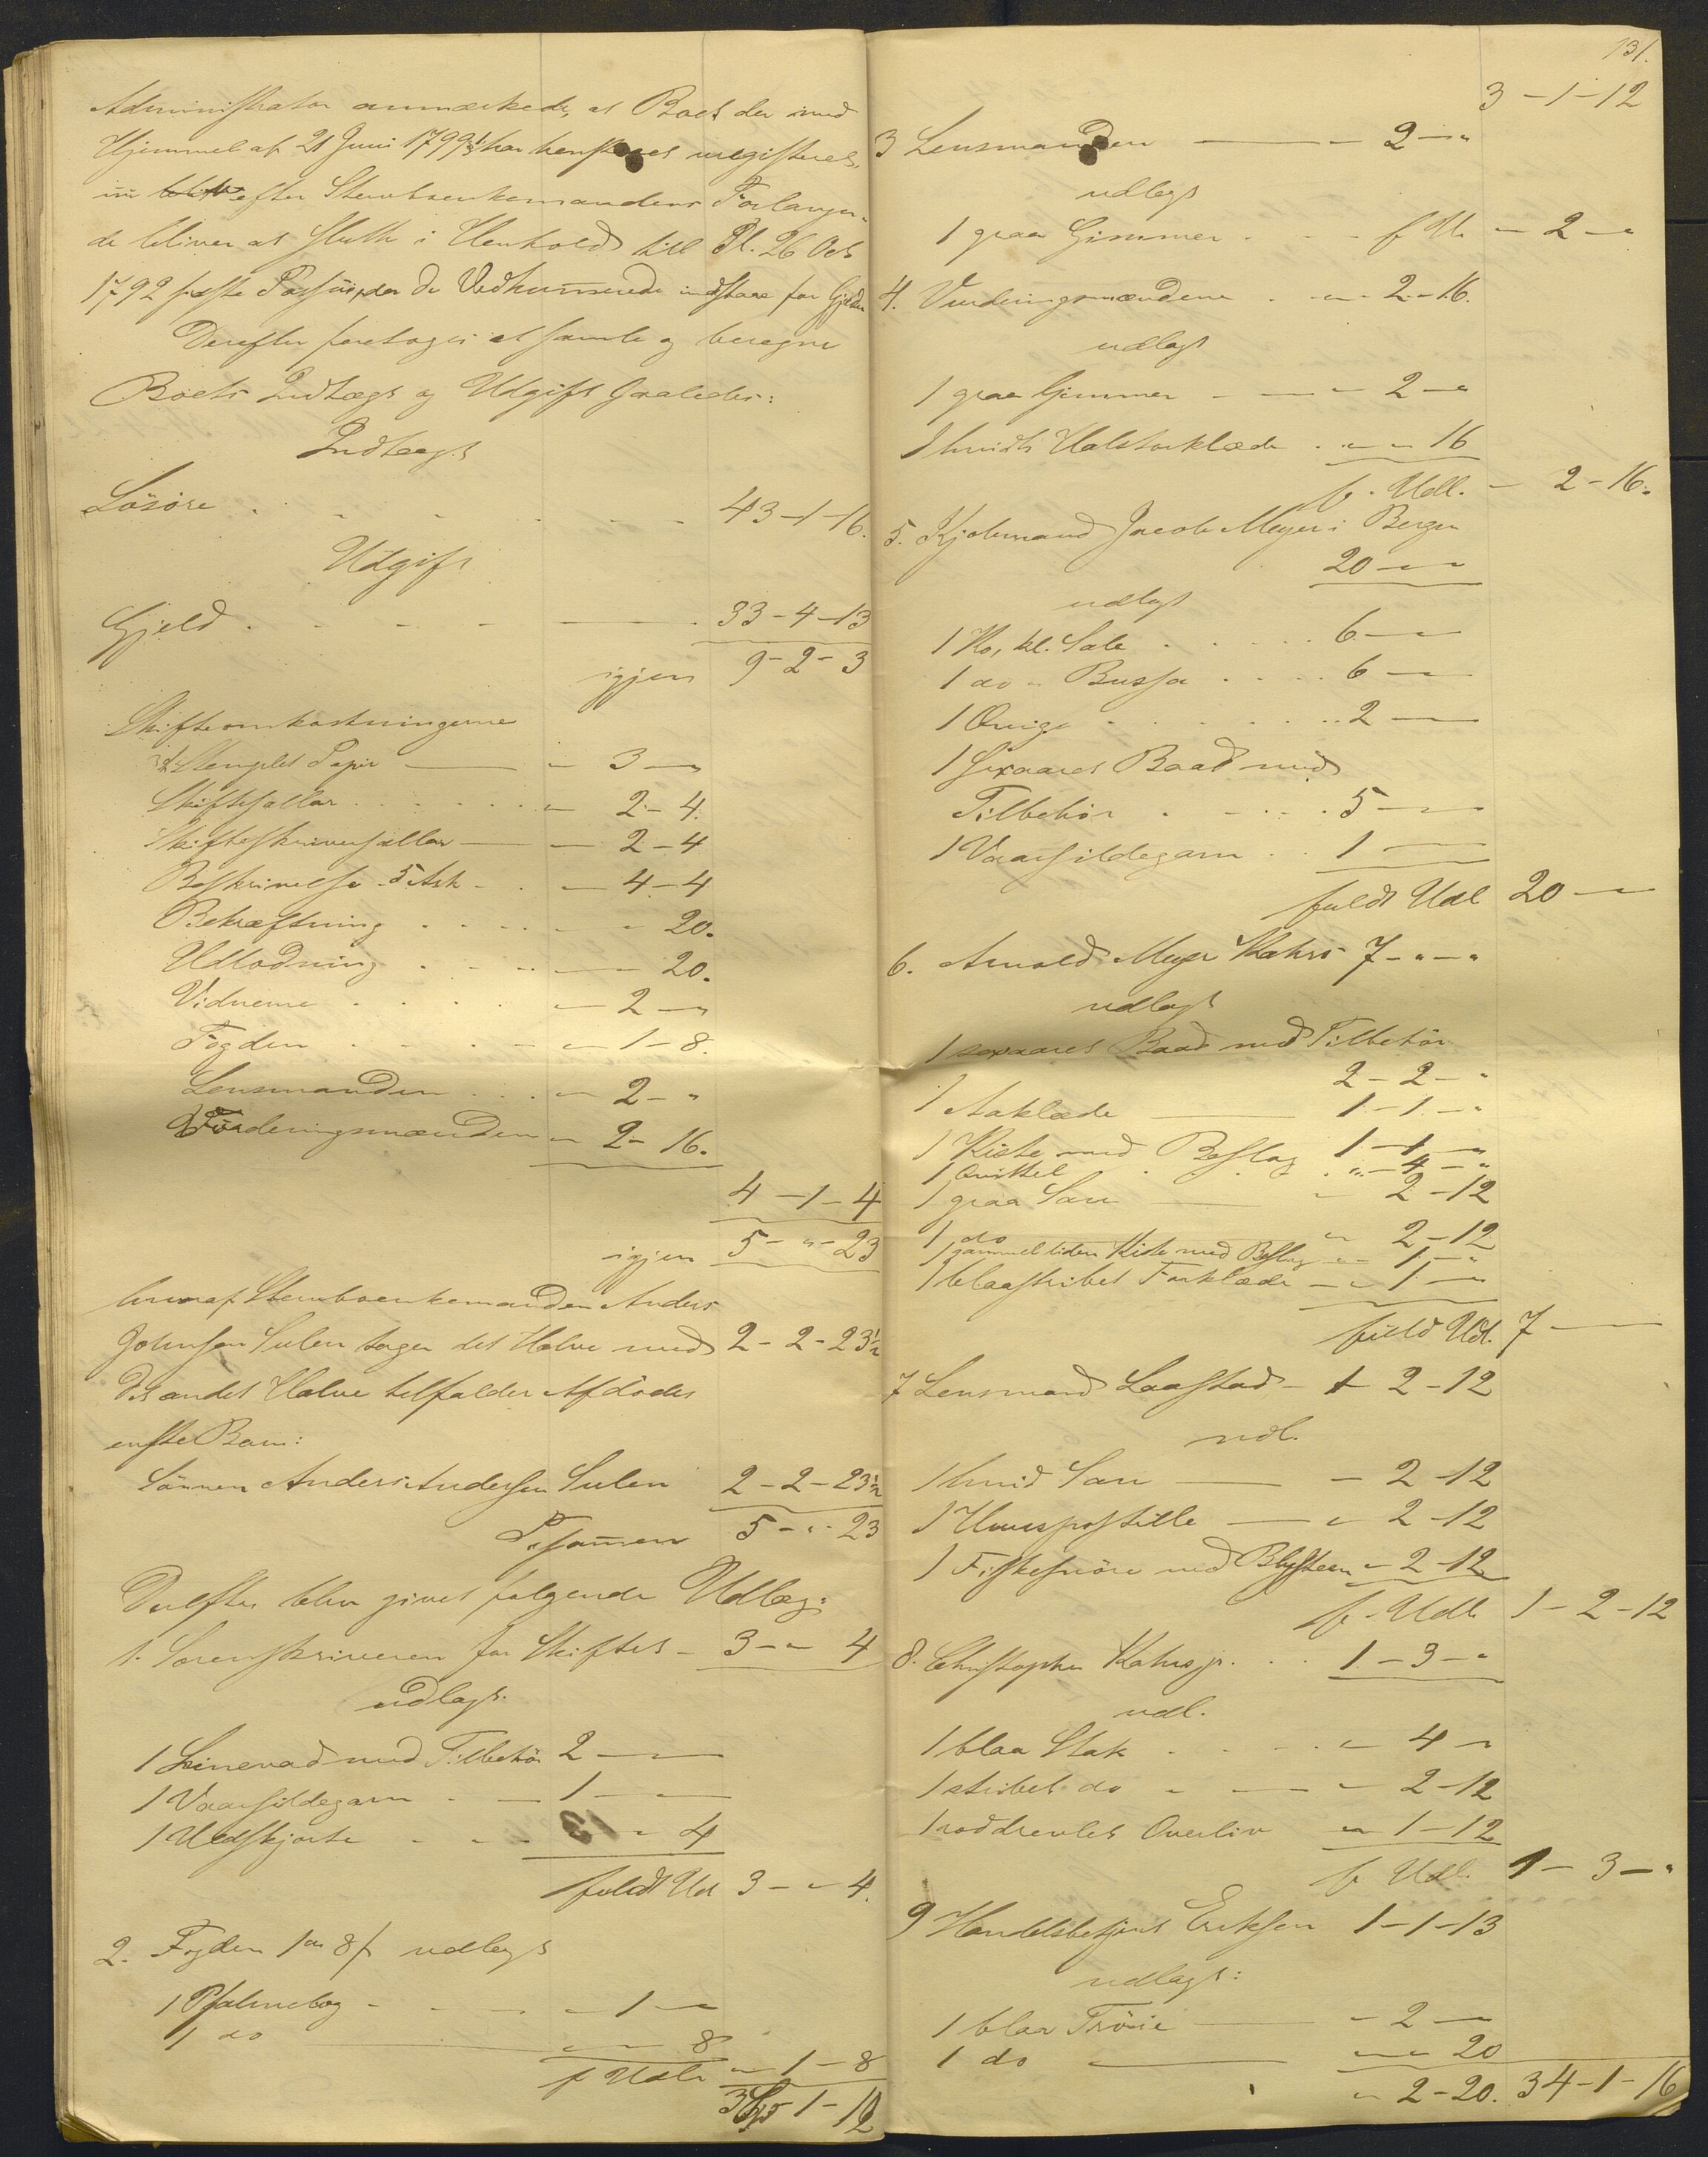 Administrator anmærkede, at Boet der med
Hjemmel af 21 Juni 1799 har henstaaet uregistreret,
nu efter Stervboenkemandens Forlangen-
de bliver at slutte i Henhold til Pl. 26 Oct
1792 sidste Passus, da de Vedkommende indstaae for Gjelden
Derefter foretoges at samle og beregne
Boets Indtægt og Udgift saaledes:
Indtægt
Lösöre . . . 43-1-16.
Udgift
Gjeld . . . 33-4-13
igjen 9-2-3
Skifteomkostningerne
Stemplet Papir — " 3 - "
Skiftesallar . . . " 2-4.
Skifteskriversallar — " 2-4
Beskrivelse 5 Ark - . " 4-4
Bekræftning . . . " " 20.
Udlodning . . . " " 20.
Vidnerne . . . " 2 - "
Fogden . . . " 1-8.
Lensmanden . . . " 2- "
Vurderingsmændene " 2-16.
4-1-4
igjen 5-"-23
hvoraf Stervboenkemanden Anders
Johnsen Sulen tager det Halve med 2-2-23½
Det andet Halve tilfalder Afdödes
eneste Barn:
Sönnen Anders Andersen Sulen 2-2-23½
Tilsammen 5-"-23
Derefter blev givet følgende Udlæg:
1. Sorenskriveren for Skiftet - 3-"-4
udlagt
1 Linevad med Tilbehör 2 - " - "
1 Vaarsildegarn . — 1 - " - "
1 Uldskjorte . . . " 4
fuldt Udl 3-"-4.
2. Fogden 1 ort 8 s udlagt
1 Psalmebog . . . " 1 - "
1 do — " " 8
f Udl. " 1-8
3 1-12
131.
3-1-12
3 Lensmanden — " 2 - "
udlagt
1 graa Gimmer . . . f Udl. " 2 - "
4. Vurderingsmændene . " 2-16.
udlagt
1 graa Gimmer - — " 2 - "
1 hvidt Halstørklæde . " " 16
f. Udl. " 2-16.
5. Kjøbmand Jacob Meyer i Bergen
20 - " - "
udlagt
1 Ko, kl. Sale . . . 6 - "
1 do " Bussa . . . 6 - "
1 Qvige . . . 2 - "
1 sexaaret Baad med
Tilbehör . . . 5 - " - "
1 Vaarsildegarn . . 1 - "
fuldt Udl 20 - "
6. Arnold Meyer Kahrs 7-"-"
udlagt
1 sexaaret Baad med Tilbehör
2-2-"
1 Aaklæde — 1-1-"
1 Kiste med Beslag 1-1-"
1 Qvittel . . . "-4-"
1 graa Sau — " 2-12
1 do " 2-12
1 gammel liden Kiste med Beslag " 1 - "
1 blaastribet Forklæde — " 1 - "
fuld Udl. 7 - "
7 Lensmand Laastad - 1-2-12
udl.
1 hvid Sau — " 2-12
1 Huuspostille — " 2-12
1 Fiskesnöre med Blysteen " 2-12
f. Udl. 1-2-12
8. Christopher Kahrs jr. . . 1-3-"
udl.
1 blaa Stak . . . " 4 - "
1 stribet do - — " 2-12
1 røddrevlet Overliv " 1-12
f Udl. 1-3-"
9 Handelsbetjent Eriksen 1-1-13
udlagt:
1 blaa Tröie — " 2 - "
1 do — " " 20
" 2-20. 34-1-16